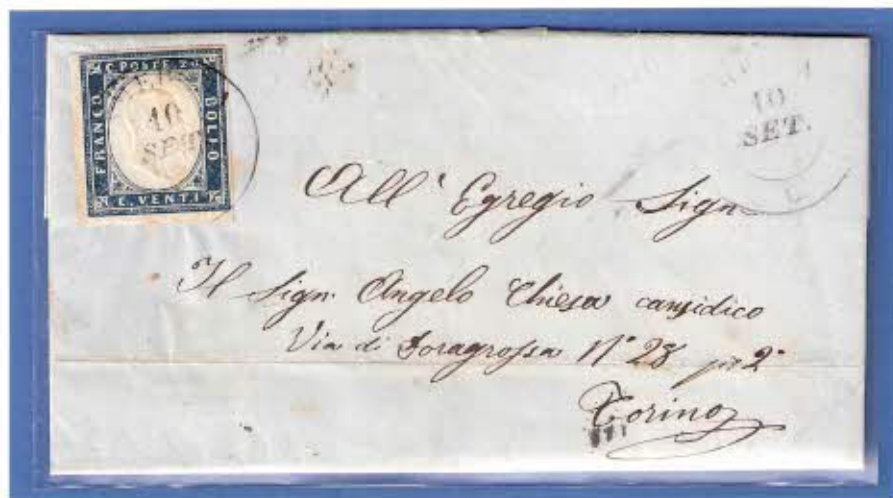 C. POSTE 20
FRANCO
BOLLO
C. VENTI
10
SET.
10
SET.
All' Egregio Sign
Il Sign. Angelo Chiesa causidico
Via di Doragrossa N° 28 p° 2°
Torino